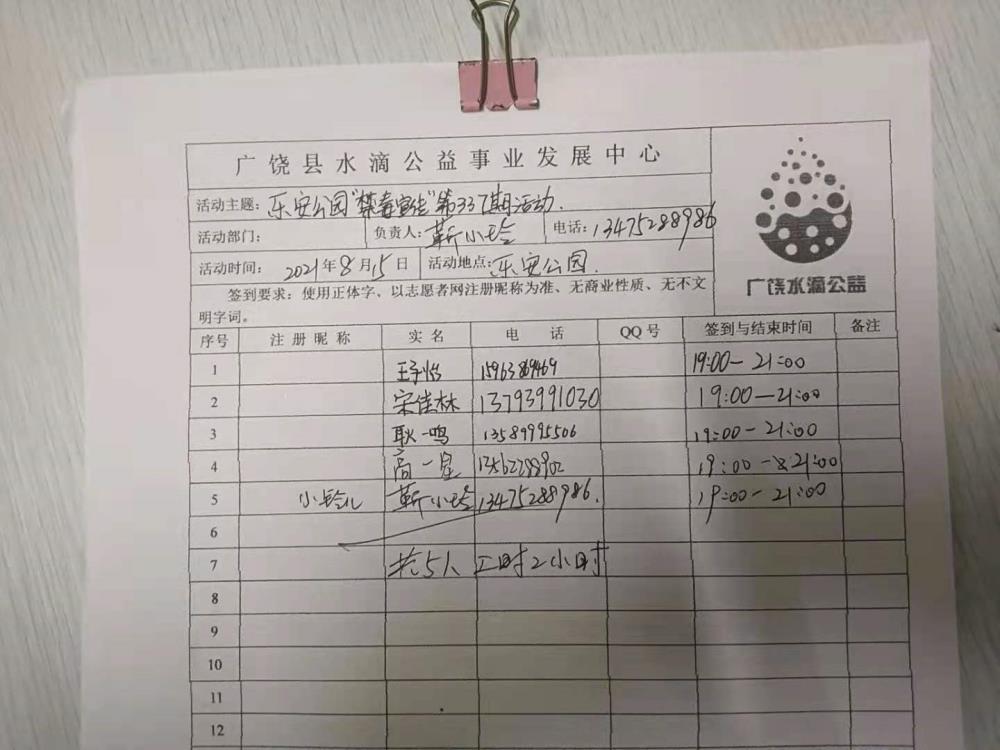 广饶县水滴公益事业发展中心
活动主题：乐安公园"禁毒宣传"第337期活动.
活动部门： 负责人：靳小玲 电话：13475288986
活动时间：2021年8月15日 活动地点：乐安公园.
签到要求：使用正体字、以志愿者网注册昵称为准、无商业性质、无不文
明字词。
广饶水滴公益
序号 注册昵称 实名 电话 QQ号 签到与结束时间 备注
1 王子怡 15963869469 19:00-21:00
2 宋佳林 13793991030 19:00-21:00
3 耿一鸣 13589995506 19:00-21:00
4 高一星 19:00-21:00
5 小玲儿 靳小玲 13475288986. 19:00-21:00
6
7 共5人 工时2小时
8
9
10
11
12